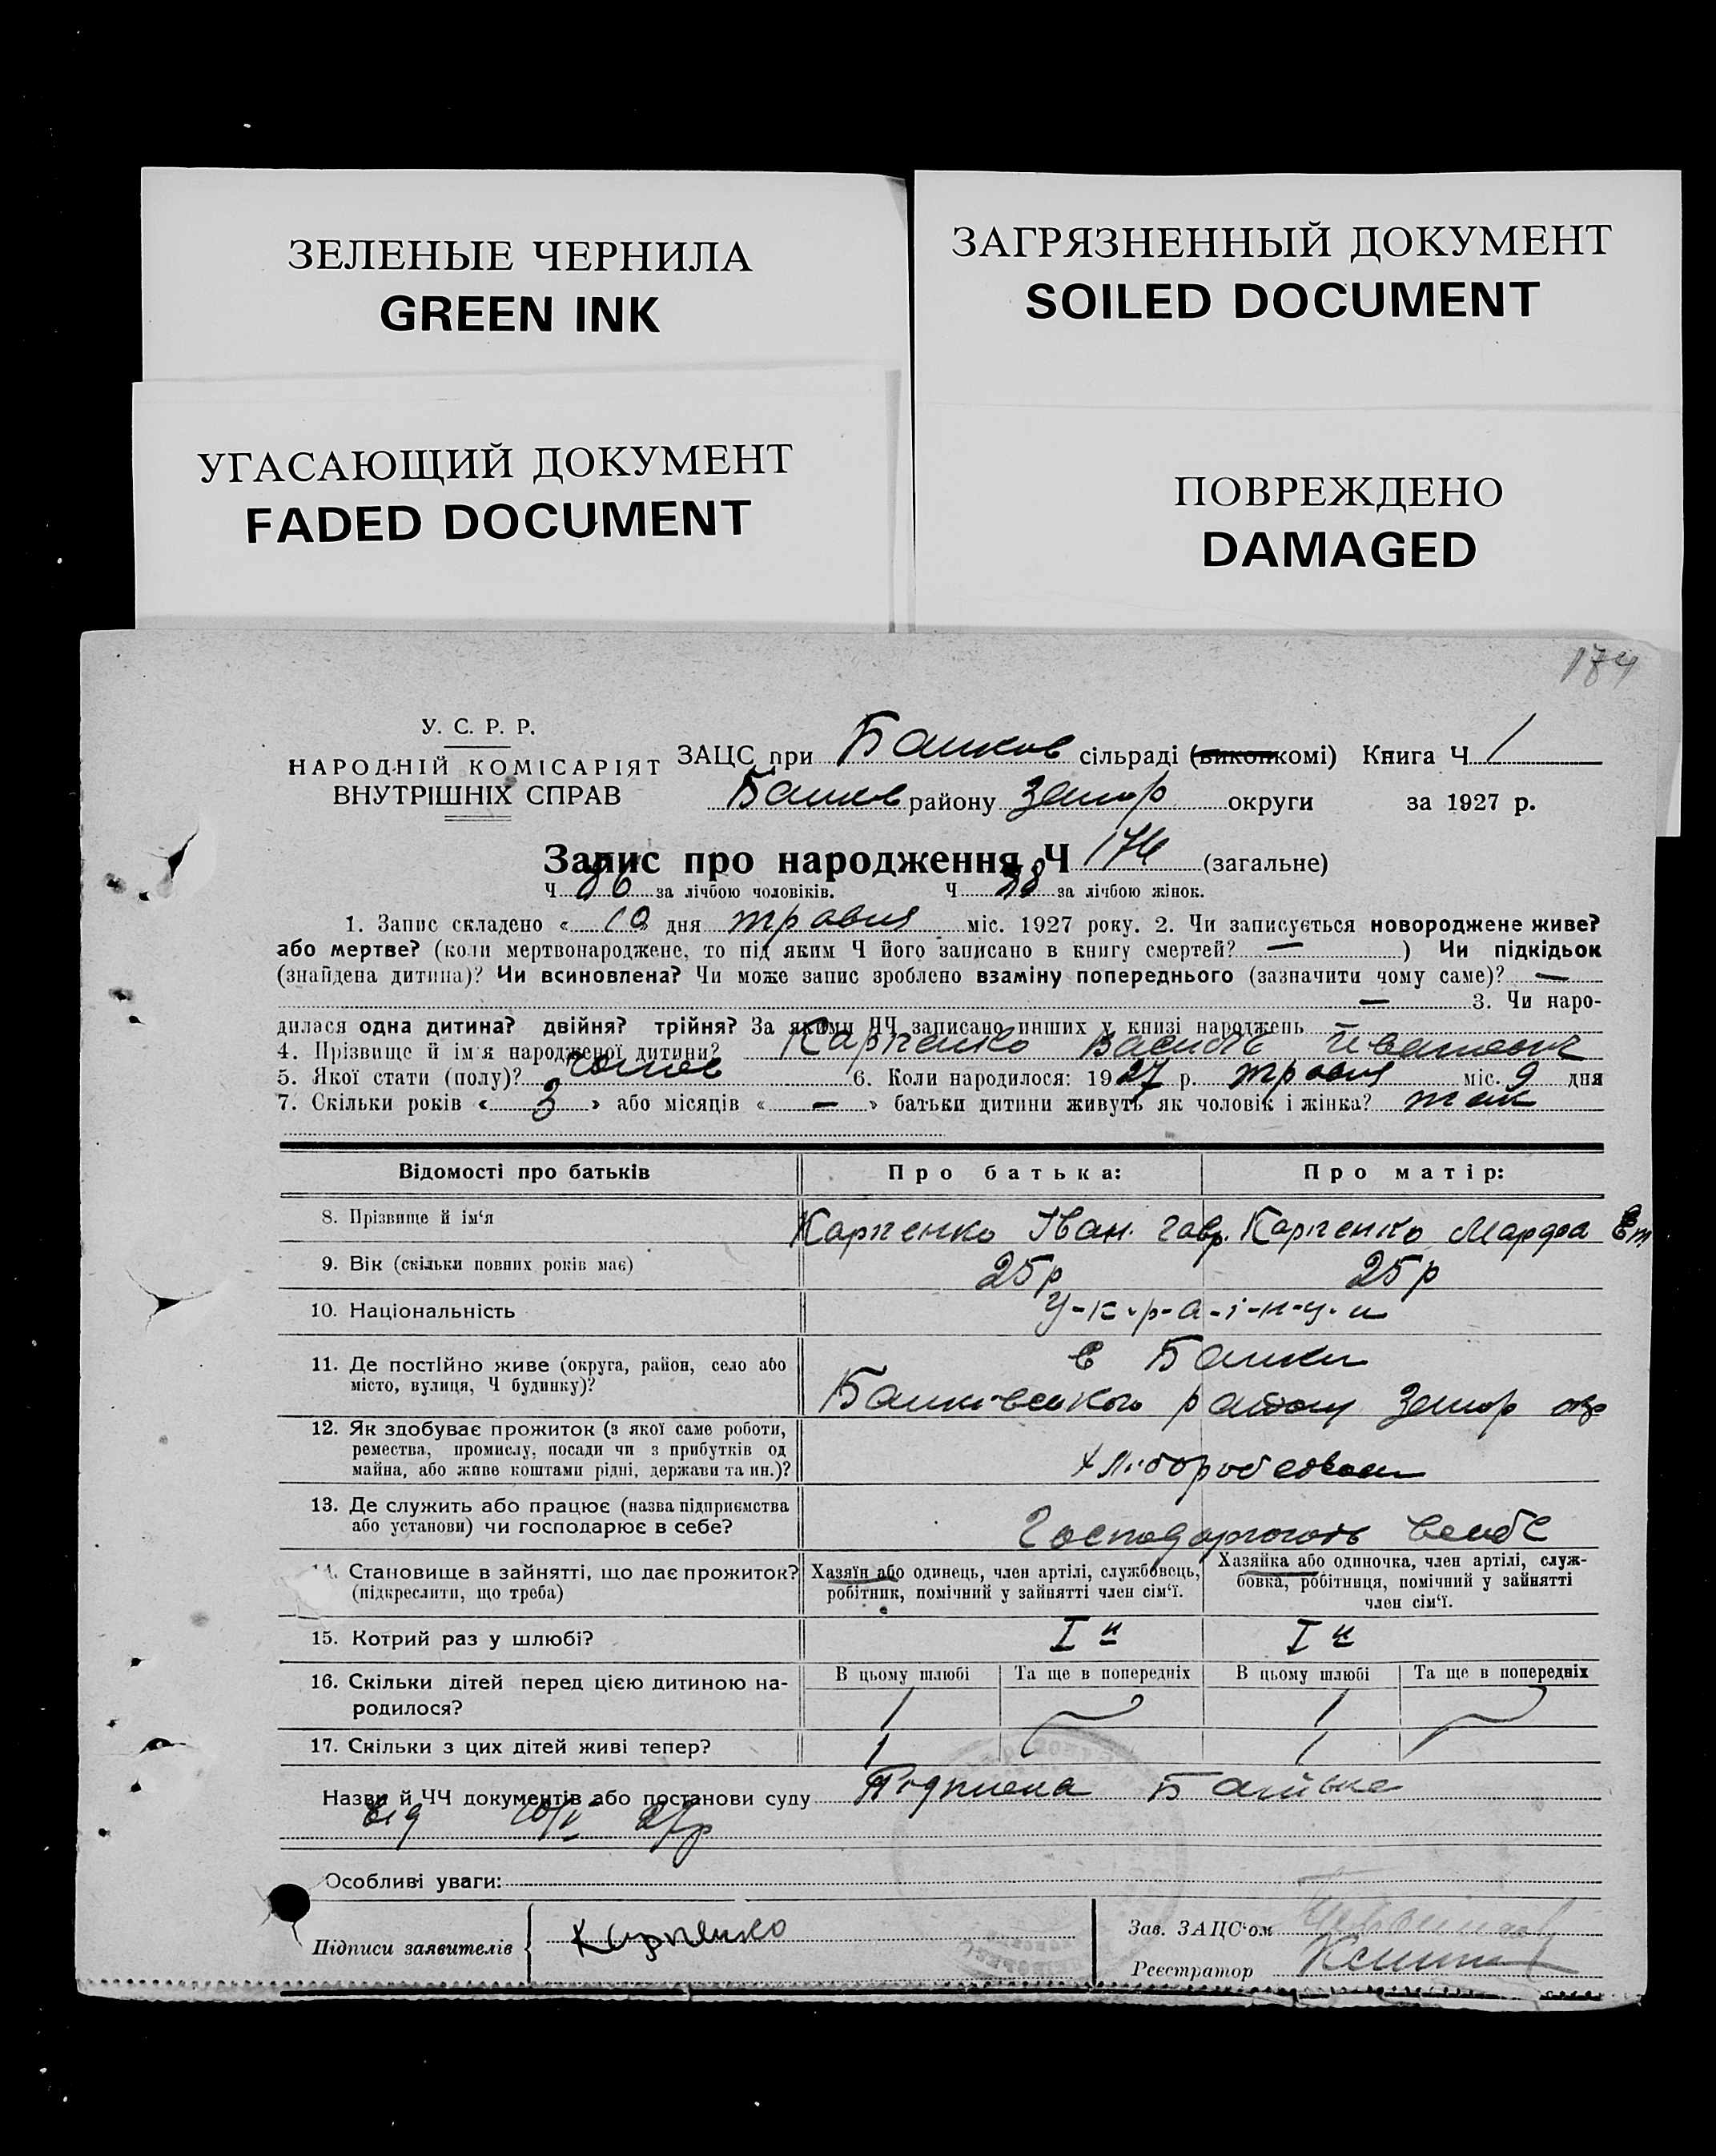 ЗЕЛЕНЫЕ ЧЕРНИЛА
GREEN INK
ЗАГРЯЗНЕННЫЙ ДОКУМЕНТ
SOILED DOCUMENT
УГАСАЮЩИЙ ДОКУМЕНТ
FADED DOCUMENT
ПОВРЕЖДЕНО
DAMAGED
174
У. С. Р. Р.
НАРОДНІЙ КОМІСАРІЯТ
ВНУТРІШНІХ СПРАВ
ЗАЦС при сільраді (виконкомі) Книга Ч 1
району округи за 1927 р.
Запис про народження Ч 174 (загальне)
Ч 86 за лічбою чоловіків. Ч 88 за лічбою жінок.
1. Запис складено « 10 дня травня міс. 1927 року. 2. Чи записується новороджене живе?
або мертве? (коли мертвонароджене, то під яким Ч його записано в книгу смертей? — ) Чи підкідьок
(знайдена дитина)? Чи всиновлена? Чи може запис зроблено взаміну попереднього (зазначити чому саме)? —
— 3. Чи наро-
дилася одна дитина? двійня? трійня? За якими ЧЧ записано инших у книзі народжень —
4. Прізвище й ім'я народженої дитини? Карпенко Василь Іванович
5. Якої стати (полу)? 6. Коли народилося: 1927 р. травня міс. 9 дня
7. Скільки років « 3 » або місяців « — » батьки дитини живуть як чоловік і жінка? так
Відомості про батьків
Про батька:
Про матір:
8. Прізвище й ім'я Карпенко Іван. Гавр. Карпенко Марфа
9. Вік (скільки повних років має) 25 р 25 р
10. Національність У-к-р-а-ї-н-ц-и
11. Де постійно живе (округа, район, село або
місто, вулиця, Ч будинку)?
району
12. Як здобуває прожиток (з якої саме роботи,
ремества, промислу, посади чи з прибутків од
майна, або живе коштами рідні, держави та ин.)?
13. Де служить або працює (назва підприємства
або установи) чи господарює в себе?
Господарюють в себе
14. Становище в зайнятті, що дає прожиток?
(підкреслити, що треба)
Хазяїн або одинець, член артілі, службовець,
робітник, помічний у зайнятті член сім'ї.
Хазяйка або одиночка, член артілі, служ-
бовка, робітниця, помічний у зайнятті
член сім'ї.
15. Котрий раз у шлюбі? I й I й
16. Скільки дітей перед цією дитиною на-
родилося?
В цьому шлюбі Та ще в попередніх В цьому шлюбі Та ще в попередніх
1 1
17. Скільки з цих дітей живі тепер? 1 1
Назви й ЧЧ документів або постанови суду Підписка Батька
від 10/V 27р
Особливі уваги:
Підписи заявителів Карпенко
Зав. ЗАЦС'ом
Реєстратор